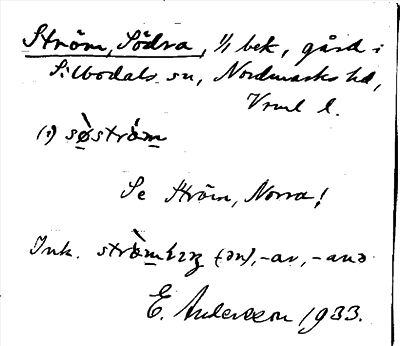 Ström, Södra, 1/1 bek, gård i
Silbodals sn, Nordmarks hd,
Vrml l.
(i) sø̀strö̀m
Se Ström, Norra!
Ink. strö̀m (ən), -ar, -anə
E. Andersson 1933.